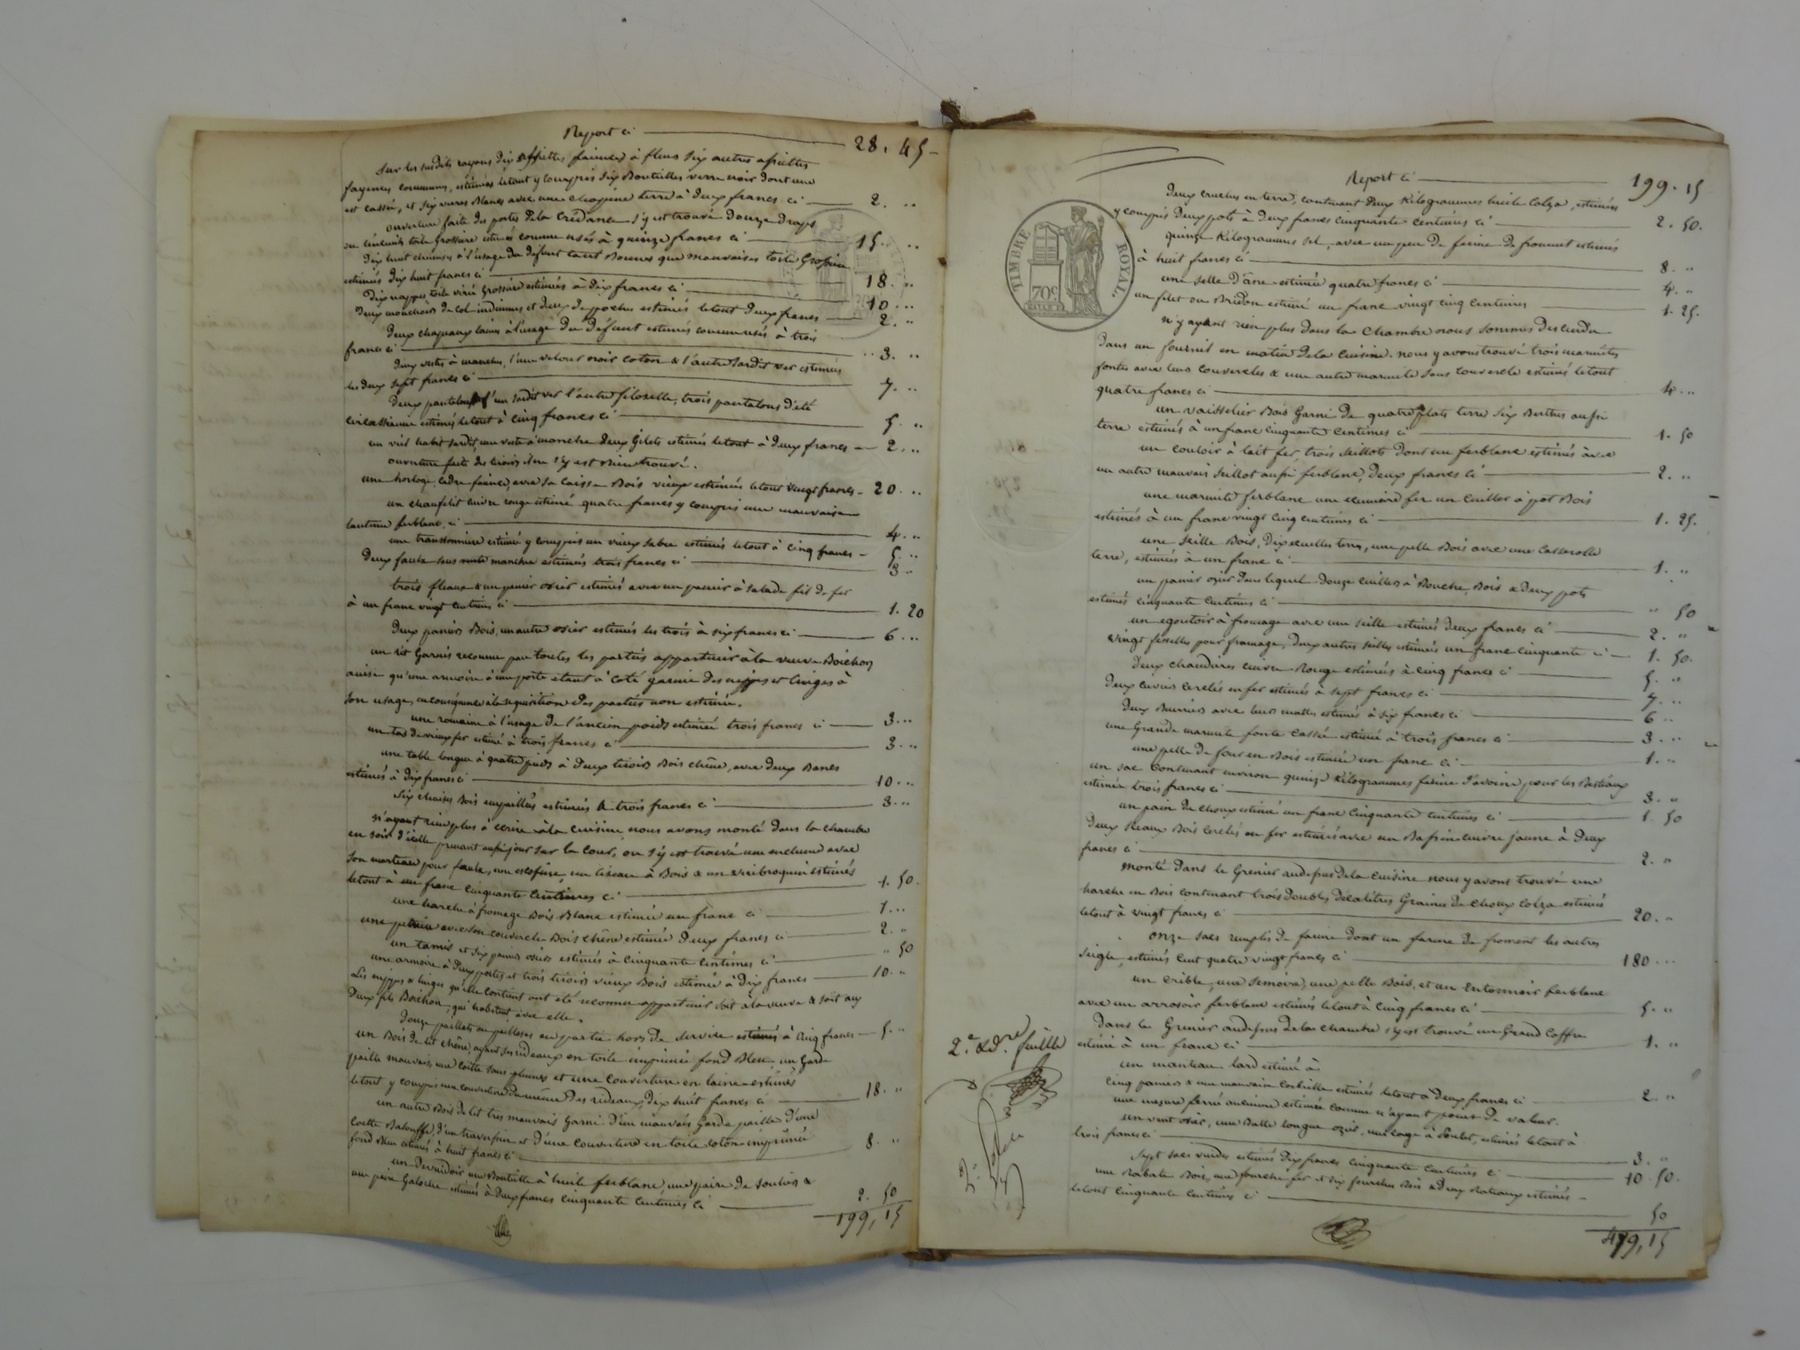 Report ci 28. 45
Sur les susdits rayons dix assiettes faience à fleurs six autres assiettes
fayence communes, estimées le tout y compris six Bouteilles verre noir dont une
est cassée, et six verres Blancs avec une terre à deux francs ci 2. "
ouverture faite des portes de la Crédance s'y est trouvé douze draps
toile Grossière estimés comme usés à quinze francs ci 15. "
dix huit chemises à l'usage du défunt tant Bonnes que mauvaises toile Grossière
estimés dix huit francs ci 18. "
Dix nappes toile Grossière estimées à dix francs ci 10. "
Deux mouchoirs de Col indiennes et deux de poche estimés le tout deux francs 2. "
deux chapeaux à l'usage du défunt estimés comme usés à trois
francs ci 3. "
deux vestes à manches, l'une velours noir coton & l'autre Sardis vert estimées
les deux sept francs ci 7. "
deux pantalons l'un Sardis vert l'autre filoselle, trois pantalons d'été
circassienne estimés le tout à cinq francs ci 5. "
un vieil habit Sardis, une veste à manche deux Gilets estimés le tout à deux francs 2. "
ouverture faite des tiroirs il ne s'y est rien trouvé.
une horloge, cadre faience, avec sa caisse Bois vieux estimés le tout vingt francs 20. "
un chauffelit cuivre rouge estimé quatre francs y compris une mauvaise
lanterne ferblanc, ci 4. "
une estimée y compris un vieux sabre estimés le tout à cinq francs 5. "
Deux faulx sous manche estimées trois francs ci 3 "
trois fléaux & un panier osier estimés avec un panier à Salade fil de fer
à un franc vingt centimes ci 1. 20
Deux paniers Bois, un autre osier estimés les trois à six francs ci 6. "
un lit Garnis reconnu par toutes les parties appartenir à la veuve Boichon
ainsi qu'une armoire à une porte étant à coté garnie des nippes et linges à
Son usage, en conséquence à la réquisition des parties non estimés.
une romaine à l'usage de l'ancien poids estimée trois francs ci 3. "
un tas de vieux fer estimé à trois francs ci 3. "
une table longue à quatre pieds à deux tiroirs Bois chêne, avec deux Bancs
estimés à dix francs ci 10. "
Six chaises Bois empaillées estimées à trois francs ci 3. "
n'ayant rien plus à écrire à la Cuisine nous avons monté dans la chambre
en soir d'icelle prenant aussi jour sur la Cour, où s'y est trouvé une enclume avec
Son marteau pour faulx, une un ciseau à Bois & un vireibroquin estimés
le tout à un franc cinquante centimes ci 1. 50.
une harche à fromage Bois Blanc estimée un franc ci 1. "
une pétrin avec son couvercle Bois Chêne estimée deux francs ci 2. "
un tamis et six paniers osiers estimés à cinquante centimes ci " 50
une armoire à deux portes et trois tiroirs vieux Bois estimée à dix francs 10. "
Les nippes & linges qu'elle contient ont été reconnu appartenir soit à la veuve & soit aux
Deux fils Boichon, qui habitent avec elle.
douze paillats ou paillasses en partie hors de service estimés à cinq francs 5. "
un Bois de lit Chêne, ayant ses rideaux en toile imprimée fond Bleu un Garde
paille mauvais, une Coitte sans plumes et une Couverture en laine estimés
le tout y compris une couverture du même des rideaux, dix huit francs ci 18. "
un autre Bois de lit très mauvais Garni d'un mauvais Garde paille d'une
Coette Balouffe, d'un traversin et d'une couverture en toile coton imprimée
fond Bleu estimés à huit francs ci 8. "
un devuidoir une Bouteille à huile ferblanc, une paire de Souliers &
une paire Galoche estimés à deux francs cinquante centimes ci 2. 50
199, 15
TIMBRE ROYAL
70c
Report ci 199. 15
Deux cruches en terre, contenant deux Kilogrammes huile Colza, estimées
y compris deux pots à deux francs cinquante centimes ci 2. 50.
quinze Kilogrammes Sel, avec un peu de farine de froment estimés
à huit francs ci 8. "
une selle d'âne estimée quatre francs ci 4. "
un filet ou Bridon estimé un franc vingt cinq centimes 1. 25.
n'y ayant rien plus dans la Chambre nous sommes descendu
Dans un fournil en matin de la Cuisine. nous y avons trouvé trois marmites
fontes avec leurs couvercles & une autre marmite sans couvercle estimés le tout
quatre francs ci 4. "
un vaisselier Bois Garni de quatre plats terre six Berthes aussi
terre estimés à un franc cinquante centimes ci 1. 50
un couloir à lait fer, trois Seillots dont un ferblanc estimés avec
un autre mauvais Seillot aussi ferblanc, deux francs ci 2. "
une marmite ferblanc une écumoire fer un cuiller à pot Bois
estimés à un franc vingt cinq centimes ci 1. 25.
une Seille Bois, Dix écuelles terre, une pelle Bois avec une Casserolle
terre, estimés à un franc ci 1. "
un panier osier dans lequel douze cuillers à Bouche, Bois & deux pots
estimés cinquante centimes ci " 50
un égoutoir à fromage avec une seille estimés deux francs ci 2. "
vingt faisselles pour fromage, deux autres seilles estimés un franc cinquante ci 1. 50.
Deux chaudières cuivre Rouge estimées à cinq francs ci 5. "
deux cuviers cerclés en fer estimés à sept francs ci 7. "
Deux Burrières avec leurs estimées à six francs ci 6 "
une Grande marmite fonte Cassée estimée à trois francs ci 3. "
une pelle de four en Bois estimée un franc ci 1. "
un sac contenant environ quinze Kilogrammes farine d'avoine, pour les Bestiaux
estimé trois francs ci 3. "
un pain de choux estimé un franc cinquante centimes ci 1. 50
deux Seaux Bois cerclés en fer estimés avec un Bassin cuivre jaune à deux
francs ci 2. "
monté dans le Grenier au dessus de la cuisine nous y avons trouvé une
harche en Bois contenant trois doubles décalitres Graines de Choux Colza estimés
le tout à vingt francs ci 20. "
onze sacs remplis de farine dont un farine de froment les autres
Seigle, estimés cent quatre vingt francs ci 180. "
un crible, une une pelle Bois, et un Entonnoir ferblanc
avec un arrosoir ferblanc estimés le tout à cinq francs ci 5. "
Dans le Grenier au dessus de la chambre s'y est trouvé un Grand Coffre
estimé à un franc ci 1. "
un manteau lard estimé à
cinq paniers & une mauvaise Corbeille estimés le tout à deux francs ci 2. "
une mesure ferré ancienne estimée comme n'ayant point de valeur.
un vent osier, une Balle longue ozier, une cage à Poulet, estimés le tout à
trois francs ci 3. "
Sept sacs vuides estimés dix francs cinquante centimes ci 10. 50.
une Rabale Bois, une fourche fer et dix fourches Bois & deux Rateaux estimés
le tout cinquante centimes ci 50
479, 15
2.e & d.re feuille